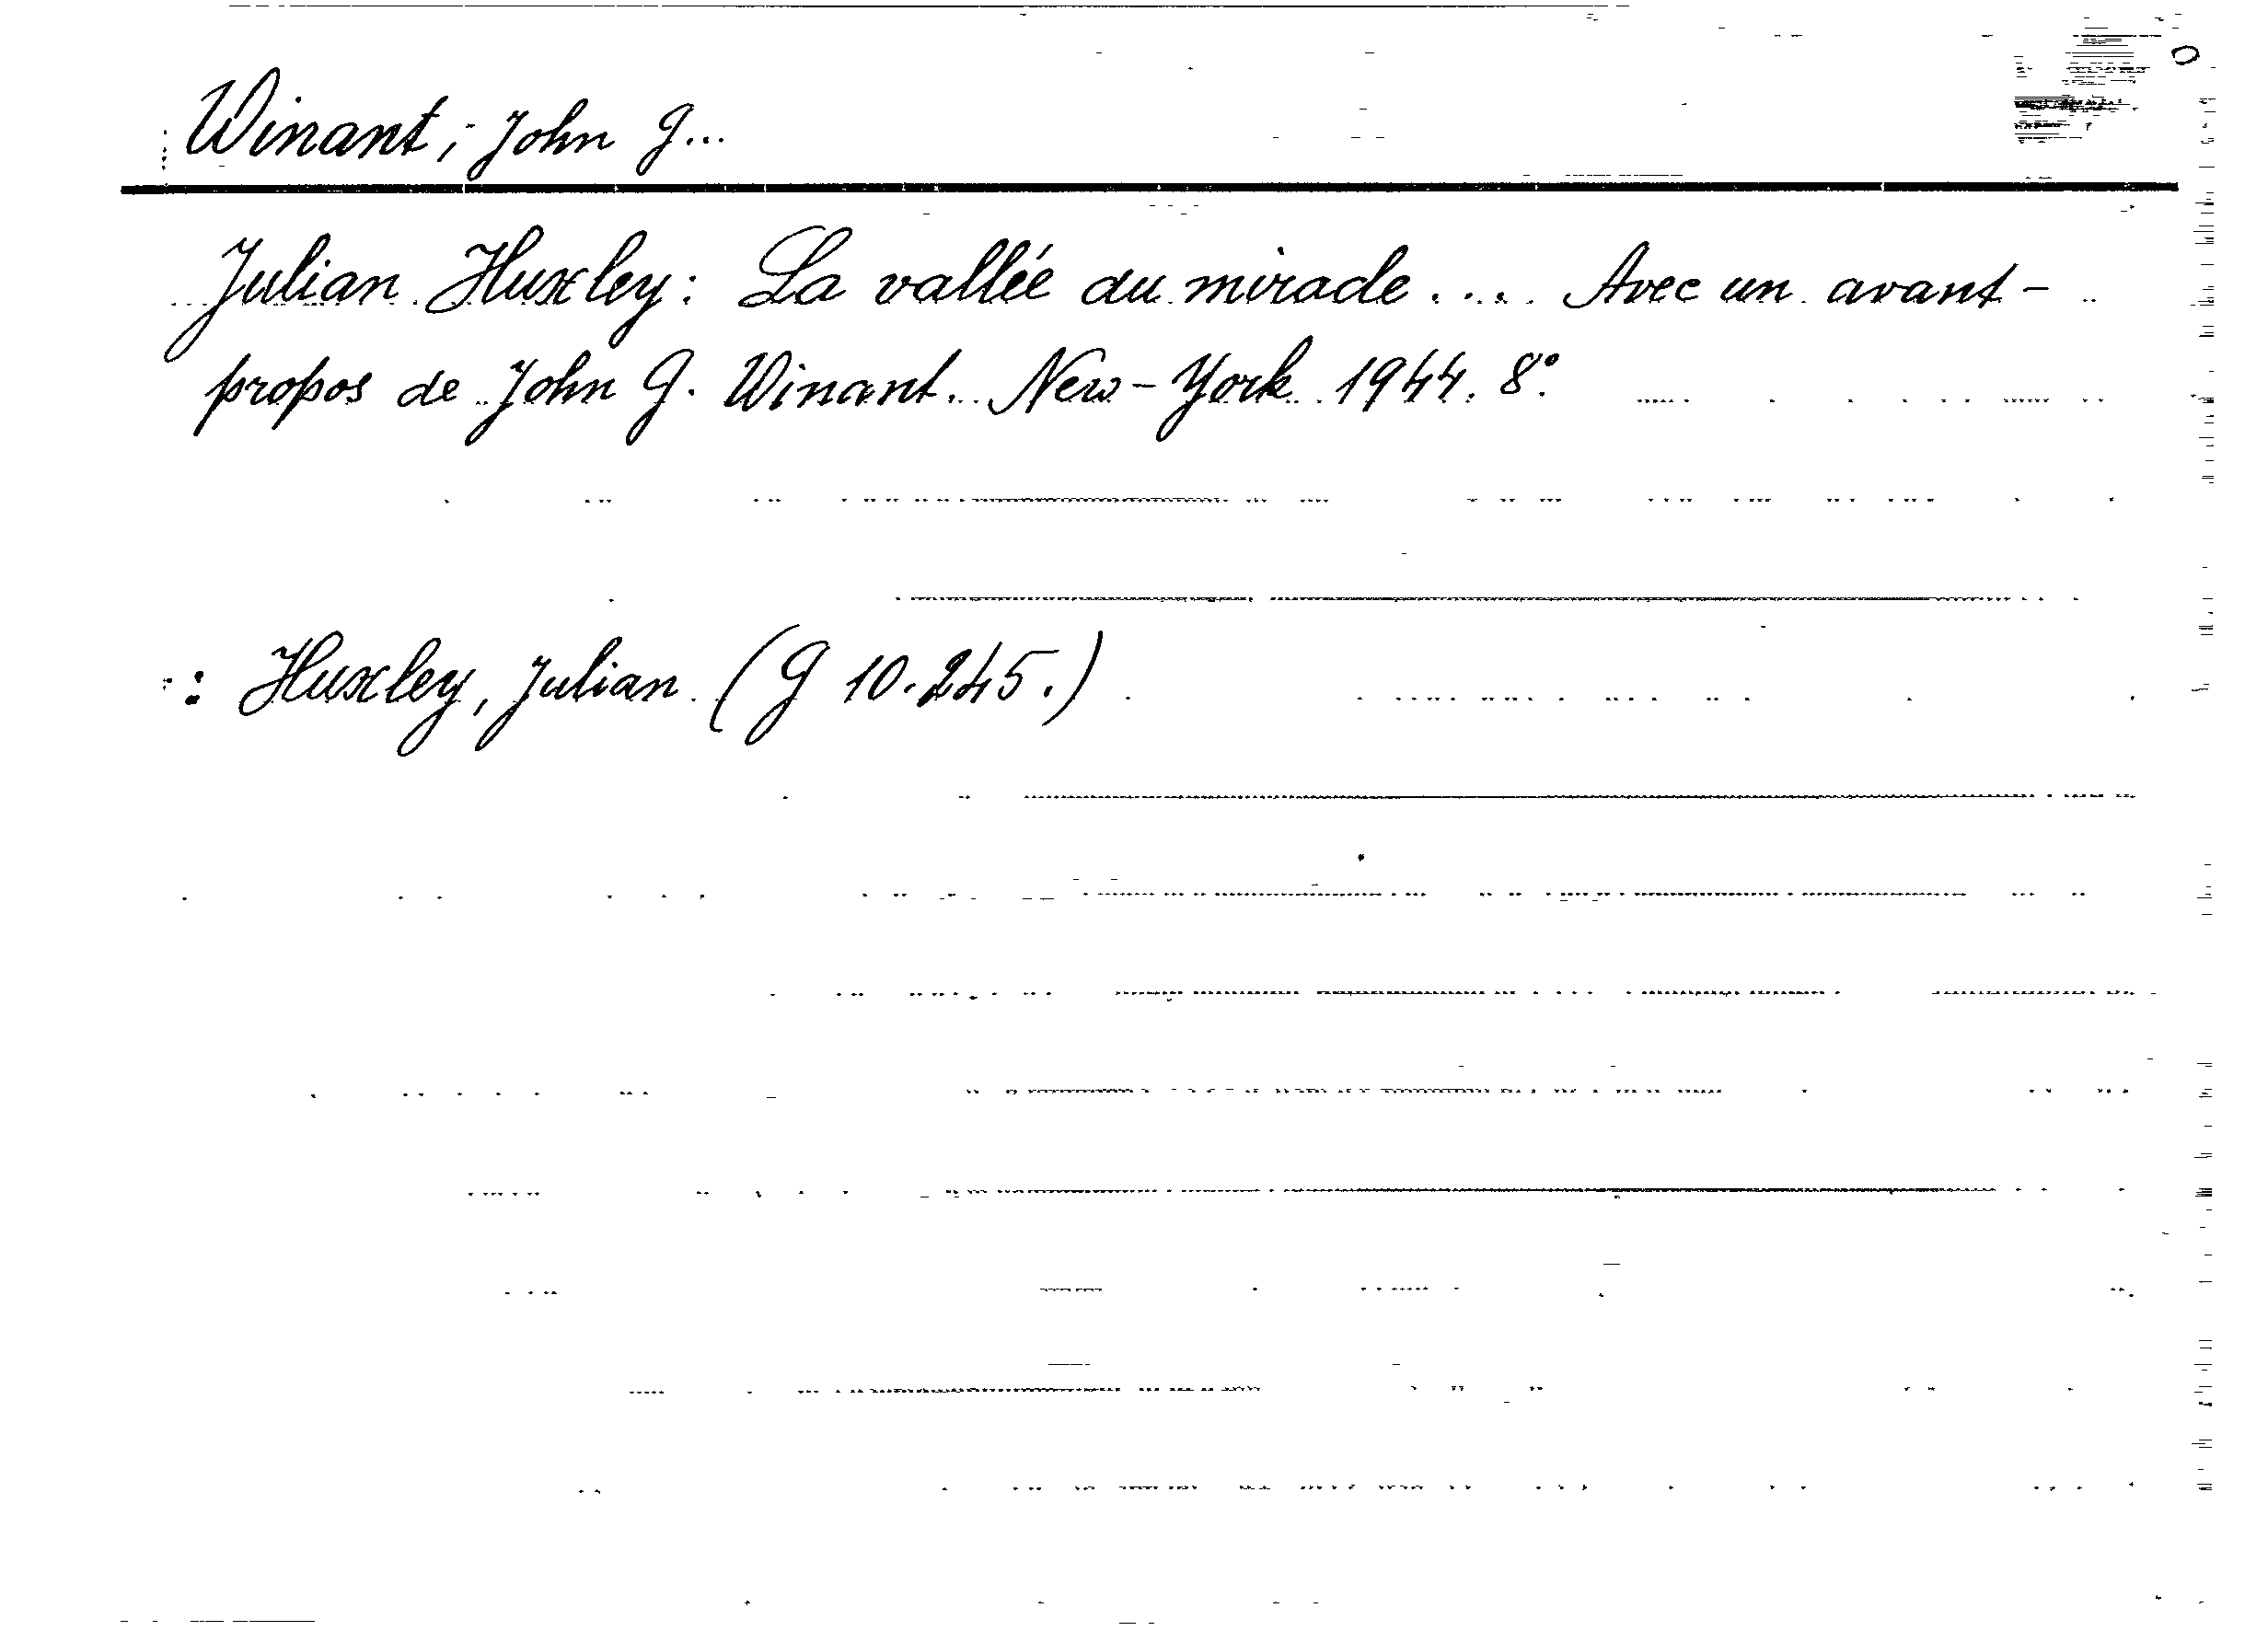 Winant, John G...
Julian Huxley: La vallée du miracle .... Avec un avant-
propos de John G. Winant. New-York 1944. 8°.
: Huxley, Julian (G 10.245.)